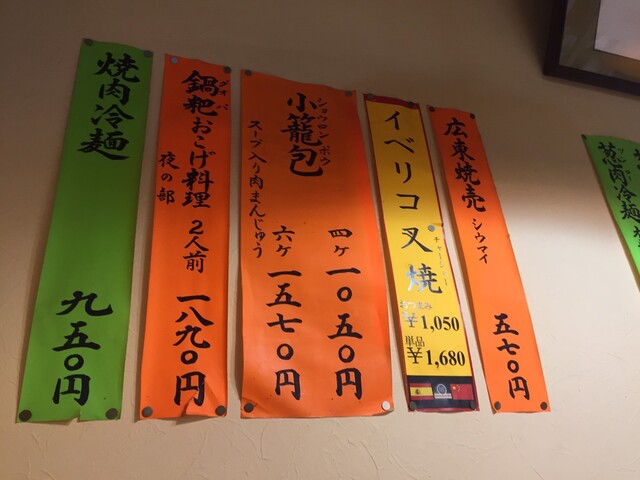 焼肉冷麺
九五〇円
鍋粑おこげ料理
グオバ
夜の部
2人前
一八九〇円
小籠包
ショウロンポウ
スープ入り肉まんじゅう
四ケ 一〇五〇円
六ケ 一五七〇円
イベリコ叉焼
チャーシュー
おつまみ
¥1,050
単品
¥1,680
広東焼売
シウマイ
五七〇円
葱肉冷麺